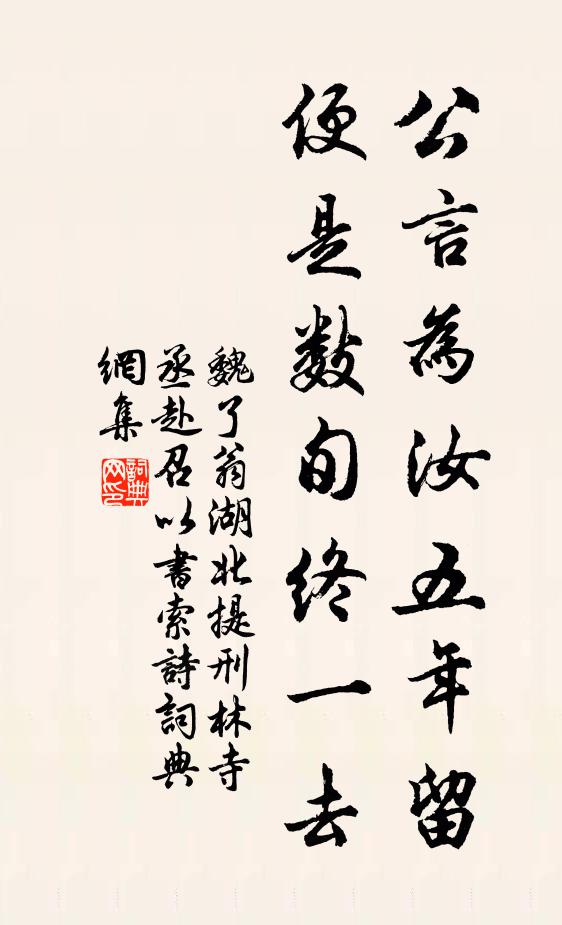 公言為汝五年留
便是數旬終一去
魏了翁湖北提刑林寺
丞赴召以書索詩詞典
網集
詞典网印